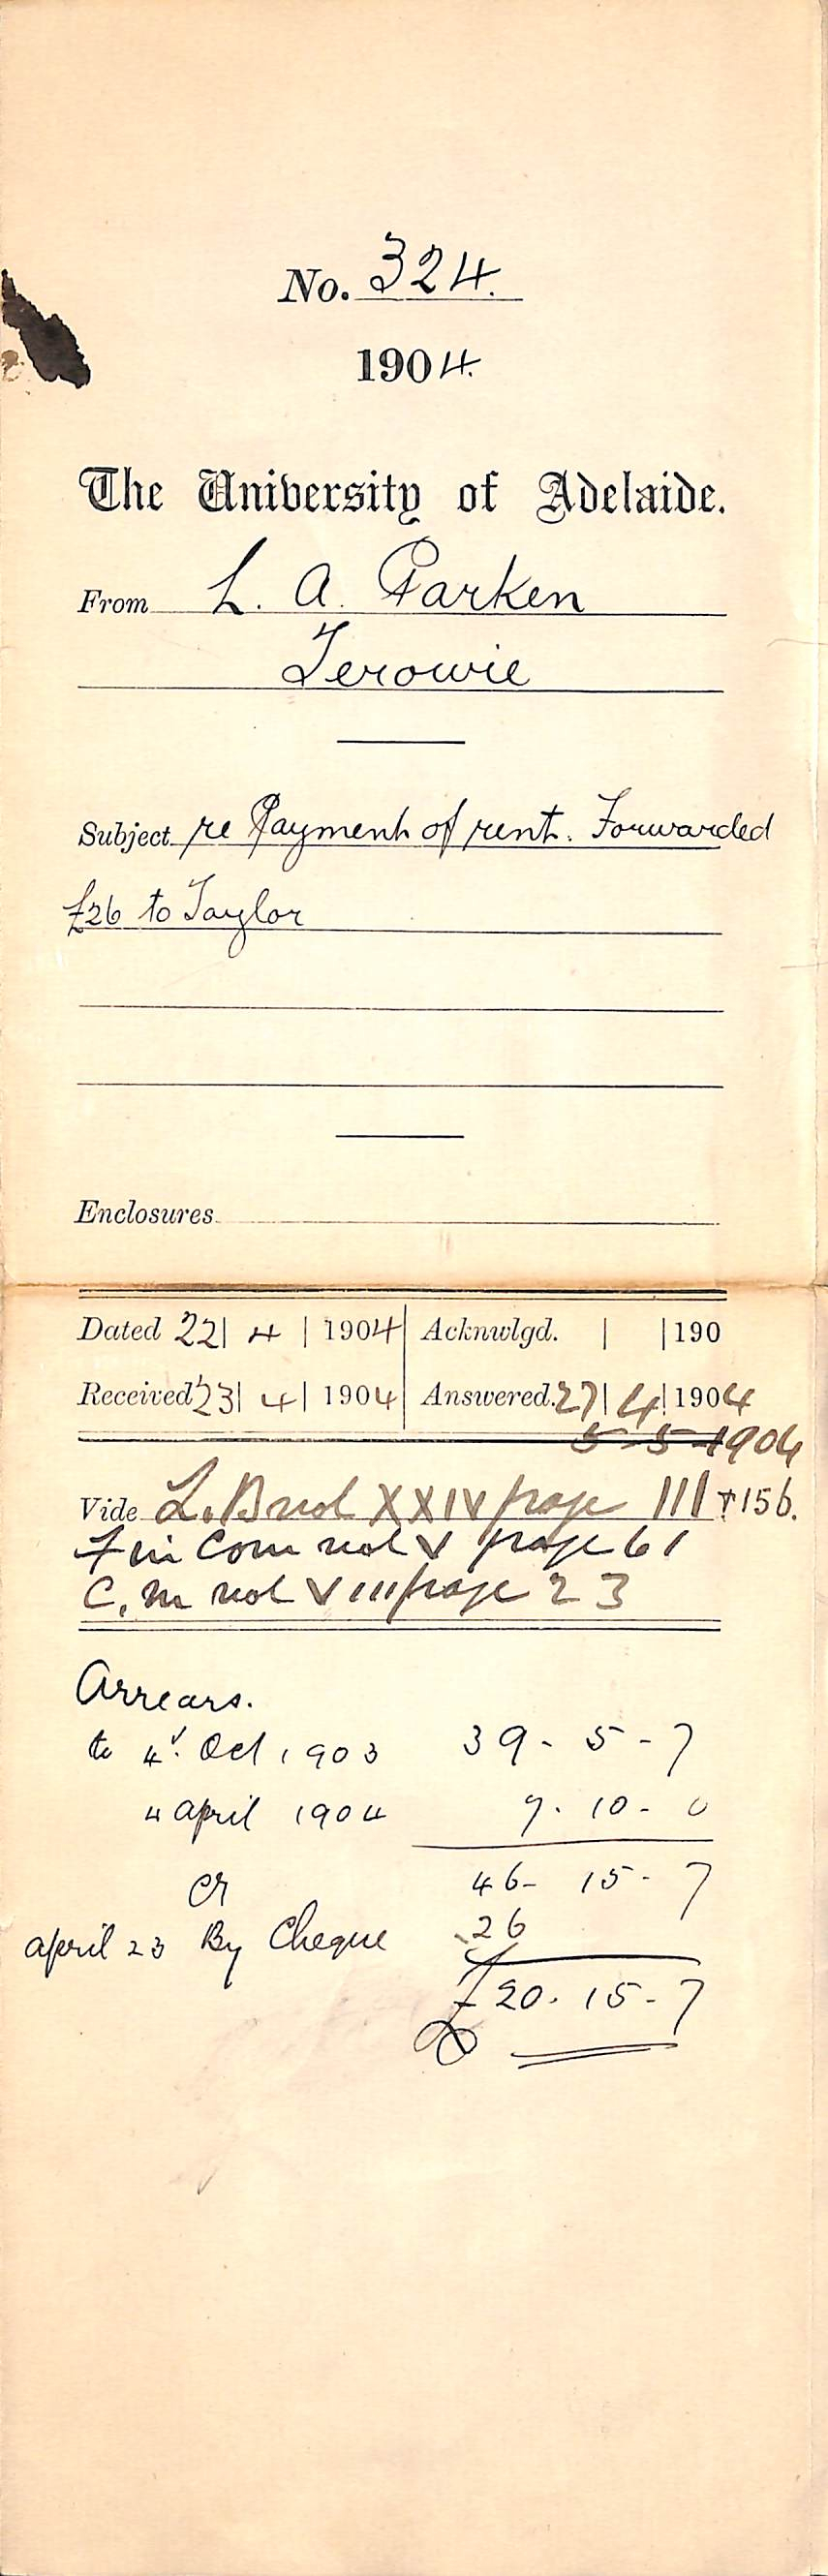 No. 324.
1904.
The University of Adelaide.
From L. A. Parken
Terowie
Subject re Payment of rent. Forwarded
£26 to Taylor
Enclosures
Dated 22| 4 | 1904 Acknwlgd. | |190
Received 23| 4 | 1904 Answered. 27| 4| 1904
5-5-1904
Vide L. B vol XXIV page 111 + 156.
Fin Com vol V page 61
C. M vol VIII page 23
Arrears.
to 4. Oct 1903 39 - 5 - 7
4 april 1904 7. 10 - 0
46 - 15 - 7
Cr
april 23 By Cheque 26
£20. 15 - 7